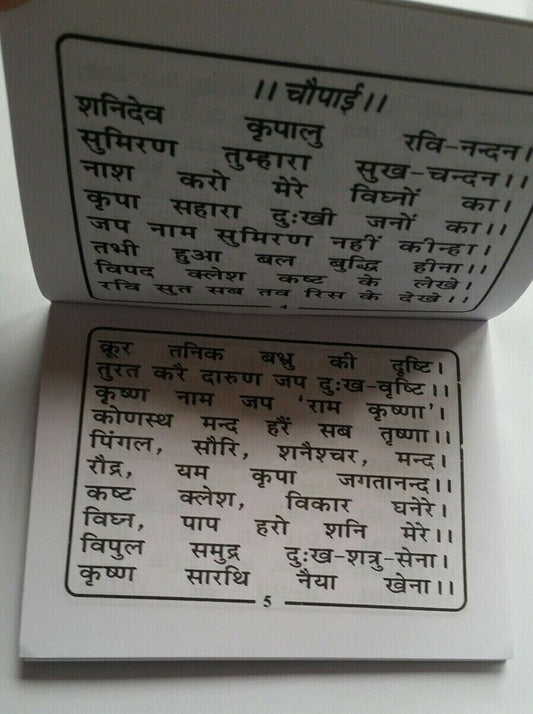 ।। चौपाई।।
शनिदेव कृपालु रवि-नन्दन।
सुमिरण तुम्हारा सुख-चन्दन।।
नाश करो मेरे विघ्नों का।
कृपा सहारा दुःखी जनों का।।
जप नाम सुमिरण नहीं कीन्हा।
तभी हुआ बल बुद्धि हीना।।
विपद क्लेश कष्ट के लेखे।
रवि सुत सब तव रिस के देखे।।
4
क्रूर तनिक बभ्रु की दृष्टि।
तुरत करै दारुण जप दुःख-वृष्टि।।
कृष्ण नाम जप 'राम कृष्णा'।
कोणस्थ मन्द हरैं सब तृष्णा।।
पिंगल, सौरि, शनैश्चर, मन्द।
रौद्र, यम कृपा जगतानन्द।।
कष्ट क्लेश, विकार घनेरे।
विघ्न, पाप हरो शनि मेरे।।
विपुल समुद्र दुःख-शत्रु-सेना।
कृष्ण सारथि नैया खेना।।
5